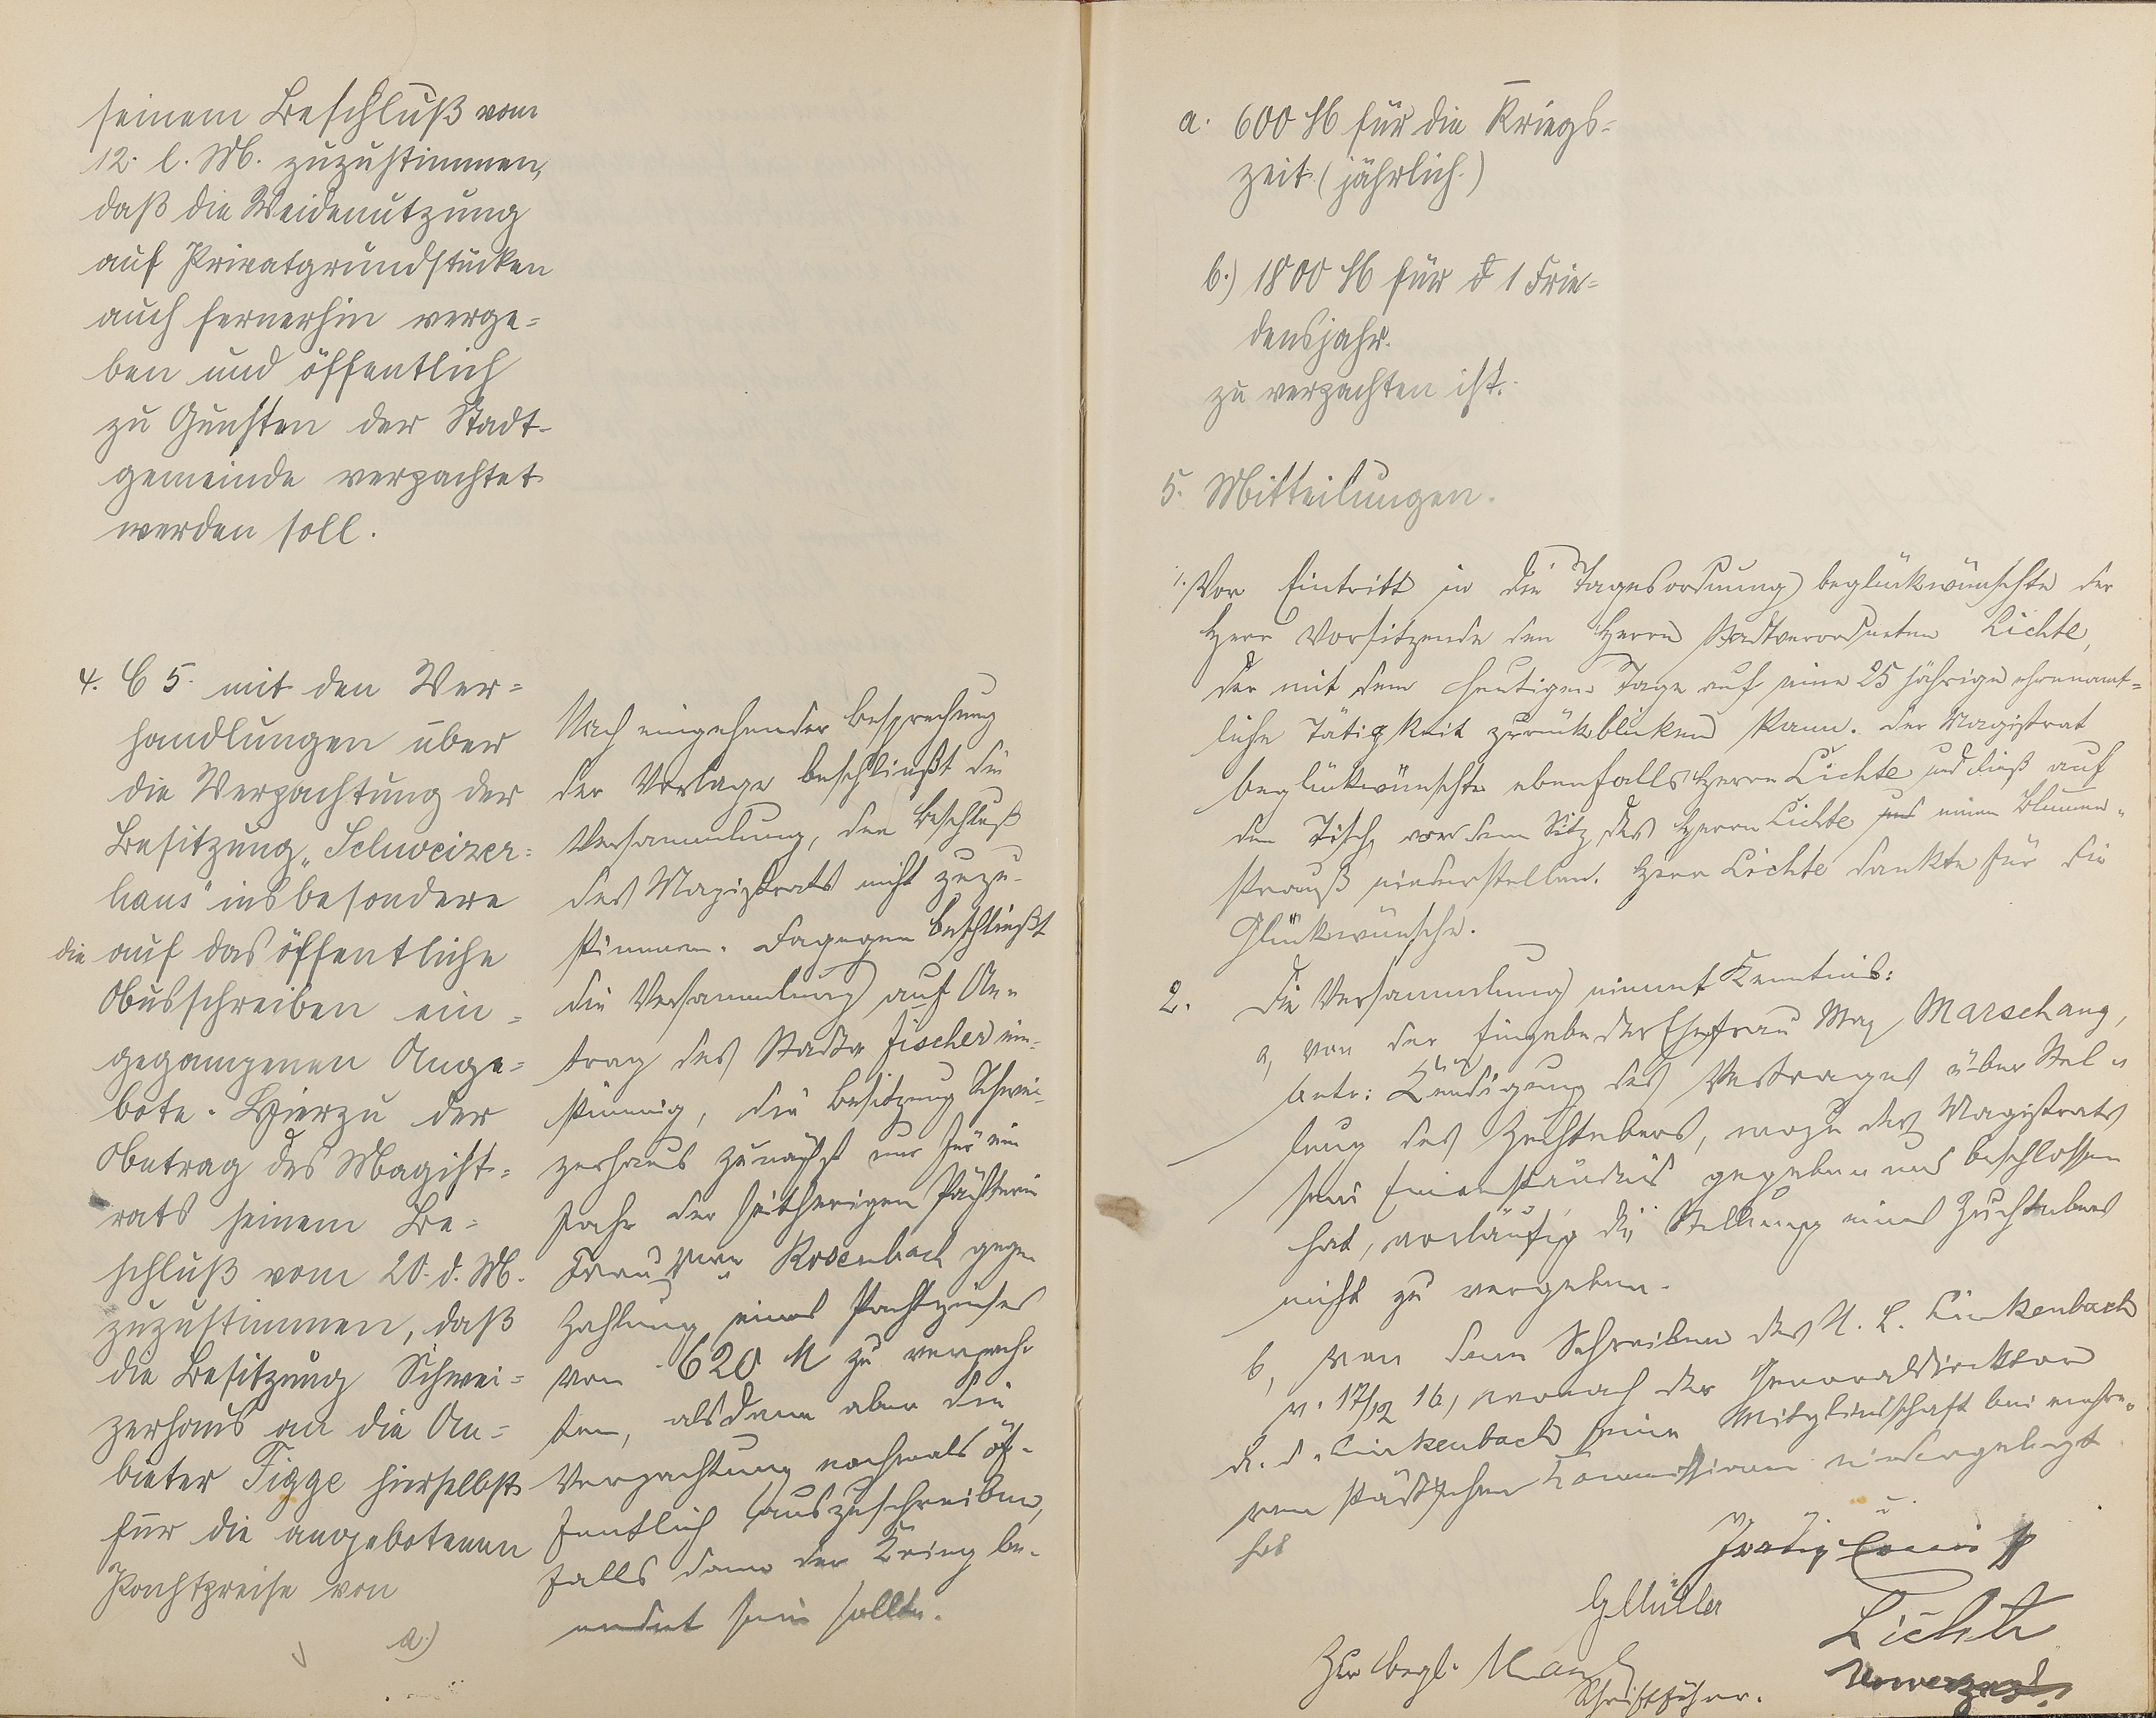 seinem Beschluß vom
12. l. M. zuzustimmen,
daß die Weidenutzung
auf Privatgrundstücken
auch fernerhin verge=
ben und öffentlich
zu Gunsten der Stadt-
gemeinde verpachtet
werden soll.
4. C 5. mit den Ver=
handlungen über
die Verpachtung der
Besitzung „Schweizer=
haus" insbesondere
die auf das öffentliche
Ausschreiben ein=
gegangenen Ange=
bote. Hierzu der
Antrag des Magist=
rats seinem Be=
schluß vom 20. d. M.
zuzustimmen, daß
die Besitzung Schwei=
zerhaus an die An=
bieter Figge hierselbst
für die angebotenen
Pachtpreise von
a.)
Nach eingehender Besprechung
der Vorlage beschließt die
Versammlung, dem Beschluß
des Magistrats nicht zuzu-
stimmen. Dagegen beschließt
die Versammlung auf An-
trag des Stadtv Fischer ein-
stimmig, die Besitzung Schwei-
zerhaus zunächst nur für ein
Jahr der seitherigen Pächterin
Frau Rosenbach gegen
Zahlung eines Pachtzinses
von 620 M zu verpach-
ten, alsdann aber die
Verpachtung nochmals öf-
fentlich auszuschreiben,
falls dann der Krieg be-
endet sein sollte.
a. 600 M für die Kriegs=
zeit (jährlich.)
b.) 1800 M für d 1 Frie=
densjahr.
zu verpachten ist.
5. Mitteilungen.
1. Vor Eintritt in die Tagesordnung beglückwünschte der
Herr Vorsitzende den Herrn Stadtverordneten Lichte,
der mit dem heutigen Tage auf eine 25 jährige ehrenamt=
liche Tätigkeit zurückblicken kann. Der Magistrat
beglückwünschte ebenfalls Herrn Lichte und ließ auf
den Tisch vor dem Sitz des Herrn Lichte einen Blumen-
strauß niederstellen. Herr Lichte dankte für die
Glückwünsche.
2. Die Versammlung nimmt Kenntnis:
a, von der Eingabe der Ehefrau Marschang,
betr: Kündigung des Vertrages über Stel-
lung des Zuchtebers, wozu der Magistrat
sein Einverständnis gegeben und beschlossen
hat, vorläufig die Stellung eines Zuchtebers
nicht zu vergeben.
b, von dem Schreiben des Linkenbach
v. 17/12 16, wonach der Generaldirektor
a. D. Linkenbach seine Mitgliedschaft bei mehre-
ren städtischen Kommissionen niedergelegt
hat
GMüller
Lichte
Schriftführer.